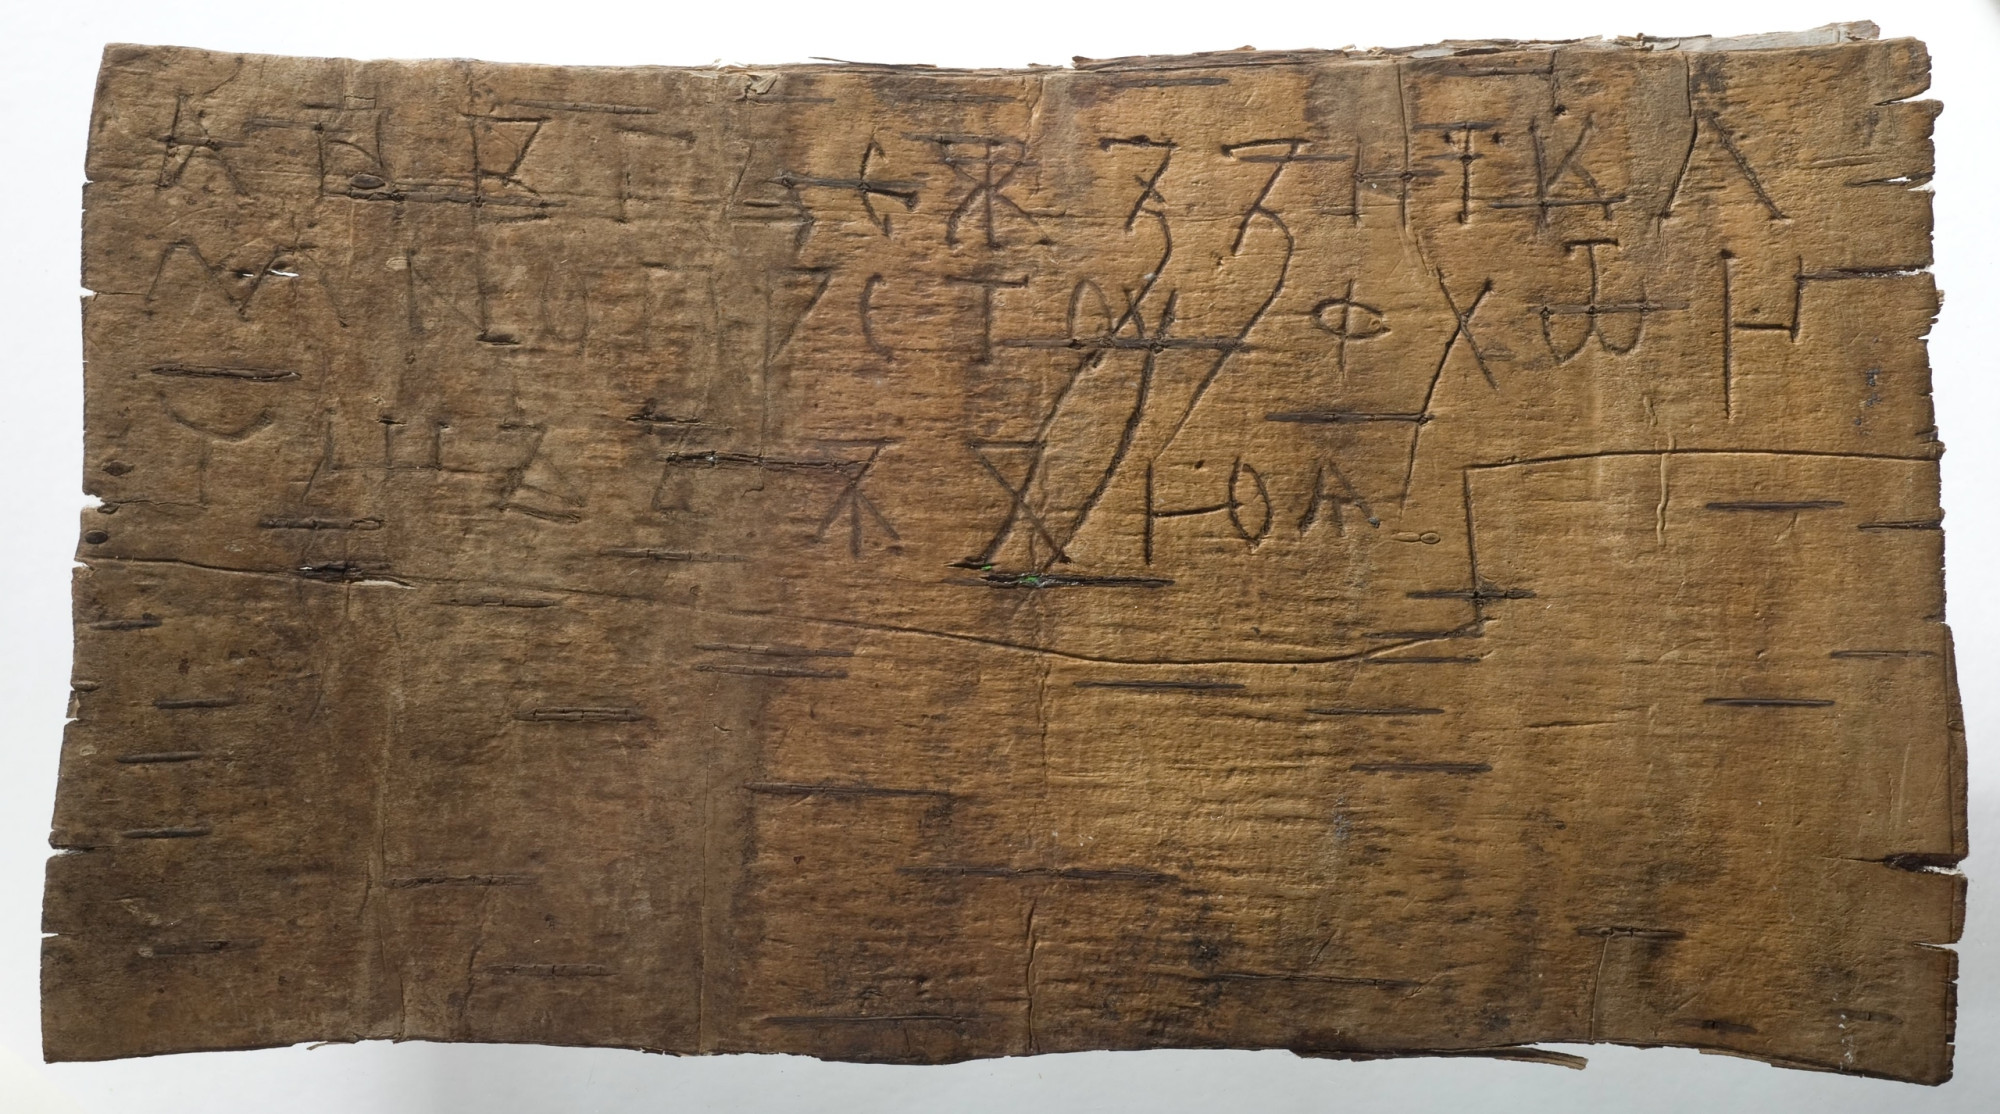 А Б В Г Д Е Ж Ꙁ Ꙁ Н Ї К Л
М Н О П Р С Т ОУ Ф Х Ѿ Ч
Ч Ш Ъ Ѫ Ю Ѧ